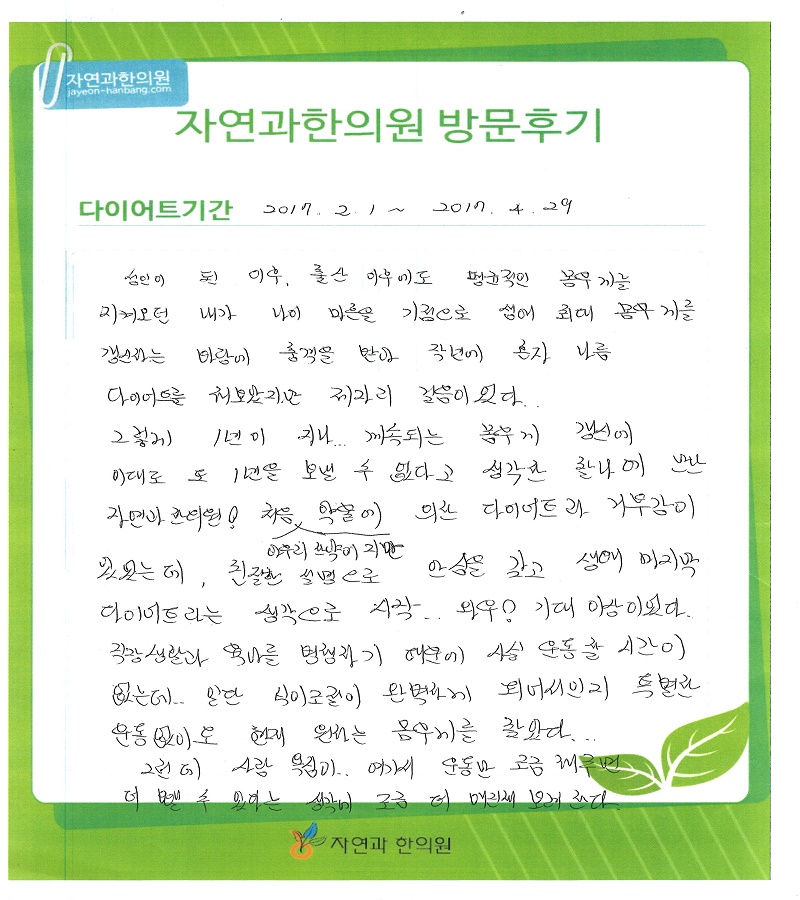 자연과한의원
jayeon-hanbang.com
자연과한의원 방문후기
다이어트기간 2017. 2. 1 ~ 2017. 4. 29
성인이 된 이후, 출산 이후에도 평균적인 몸무게를
지켜오던 내가 나이 마흔을 기점으로 생애 최대 몸무게를
갱신하는 바람에 충격을 받아 작년에 혼자 나름
다이어트를 해보았지만 제자리 걸음이었다..
그렇게 1년이 지나... 계속되는 몸무게 갱신에
이대로 또 1년을 보낼 수 없다고 생각한 찰나에 만난
자연과 한의원! 처음, 약물에 의한 다이어트라 거부감이
아무리 한약이지만
있었는데, 친절한 설명으로 안심을 갖고 생애 마지막
다이어트라는 생각으로 시작... 와우! 기대 이상이었다.
직장생활과 육아를 병행하기 때문에 사실 운동할 시간이
없는데.. 일단 식이조절이 완벽하게 되어서인지 특별한
운동 없이도 현재 원하는 몸무게를 찾았다...
그런데 사람 욕심이.. 여기서 운동만 조금 해주면
더 뺄 수 있다는 생각이 조금 더 보게 한다.
자연과 한의원